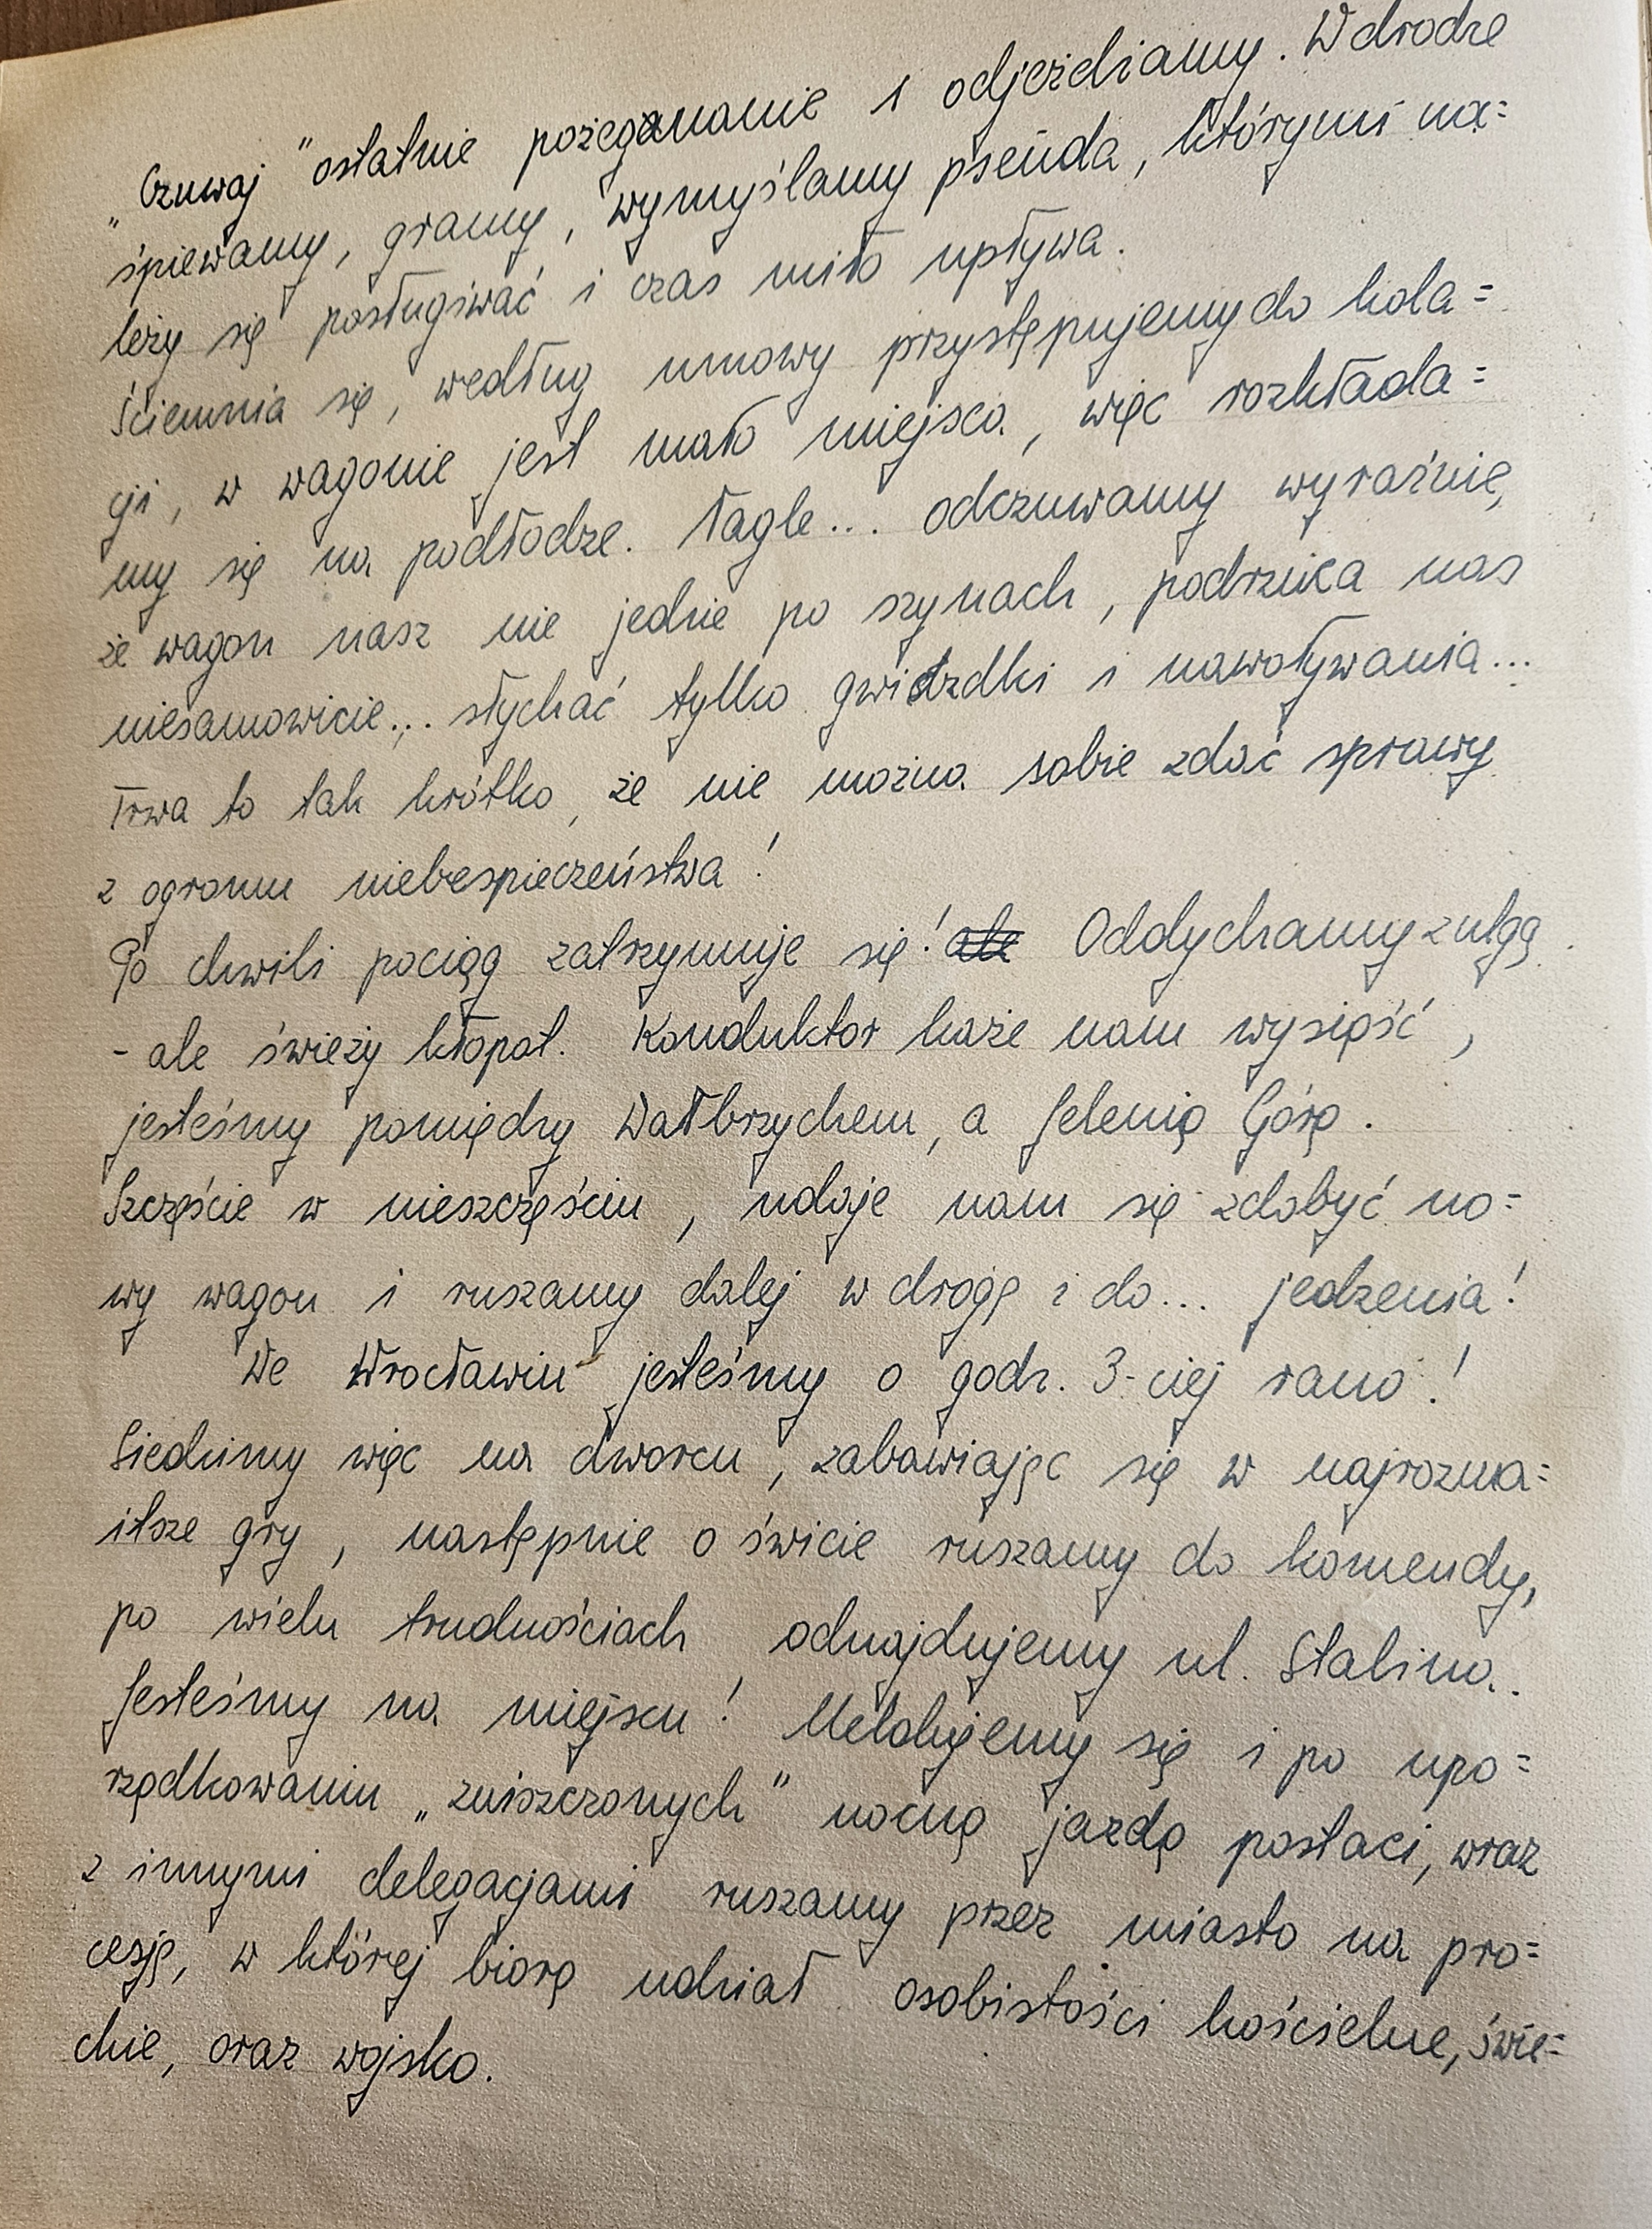 „Czuwaj" ostatnie pożegnanie i odjeżdżamy. W drodze
śpiewamy, gramy, wymyślamy pseuda, którymi na=
leży się posługiwać i czas miło upływa.
Ściemnia się, według umowy przystępujemy do kola=
cji, w wagonie jest mało miejsca, więc rozkłada=
my się na podłodze. Nagle... odczuwamy wyraźnie,
że wagon nasz nie jedzie po szynach, podrzuca nas
niesamowicie... słychać tylko gwizdki i nawoływania...
Trwa to tak krótko, że nie można sobie zdać sprawy
z ogromu niebezpieczeństwa!
Po chwili pociąg zatrzymuje się! ale Oddychamy z ulgą.
- ale świeży kłopot. Konduktor każe nam wysiąść,
jesteśmy pomiędzy Wałbrzychem, a Jelenią Górą.
Szczęście w nieszczęściu, udaje nam się zdobyć no=
wy wagon i ruszamy dalej w drogę i do... jedzenia!
We Wrocławiu jesteśmy o godz. 3-ciej rano!
Siedzimy więc na dworcu, zabawiając się w najrozma=
itsze gry, następnie o świcie ruszamy do komendy,
po wielu trudnościach odnajdujemy ul. Stalina.
Jesteśmy na miejscu! Meldujemy się i po upo=
rządkowaniu „zniszczonych" nocną jazdą postaci, wraz
z innymi delegacjami ruszamy przez miasto na pro=
cesję, w której biorą udział osobistości kościelne, świe=
ckie, oraz wojsko.